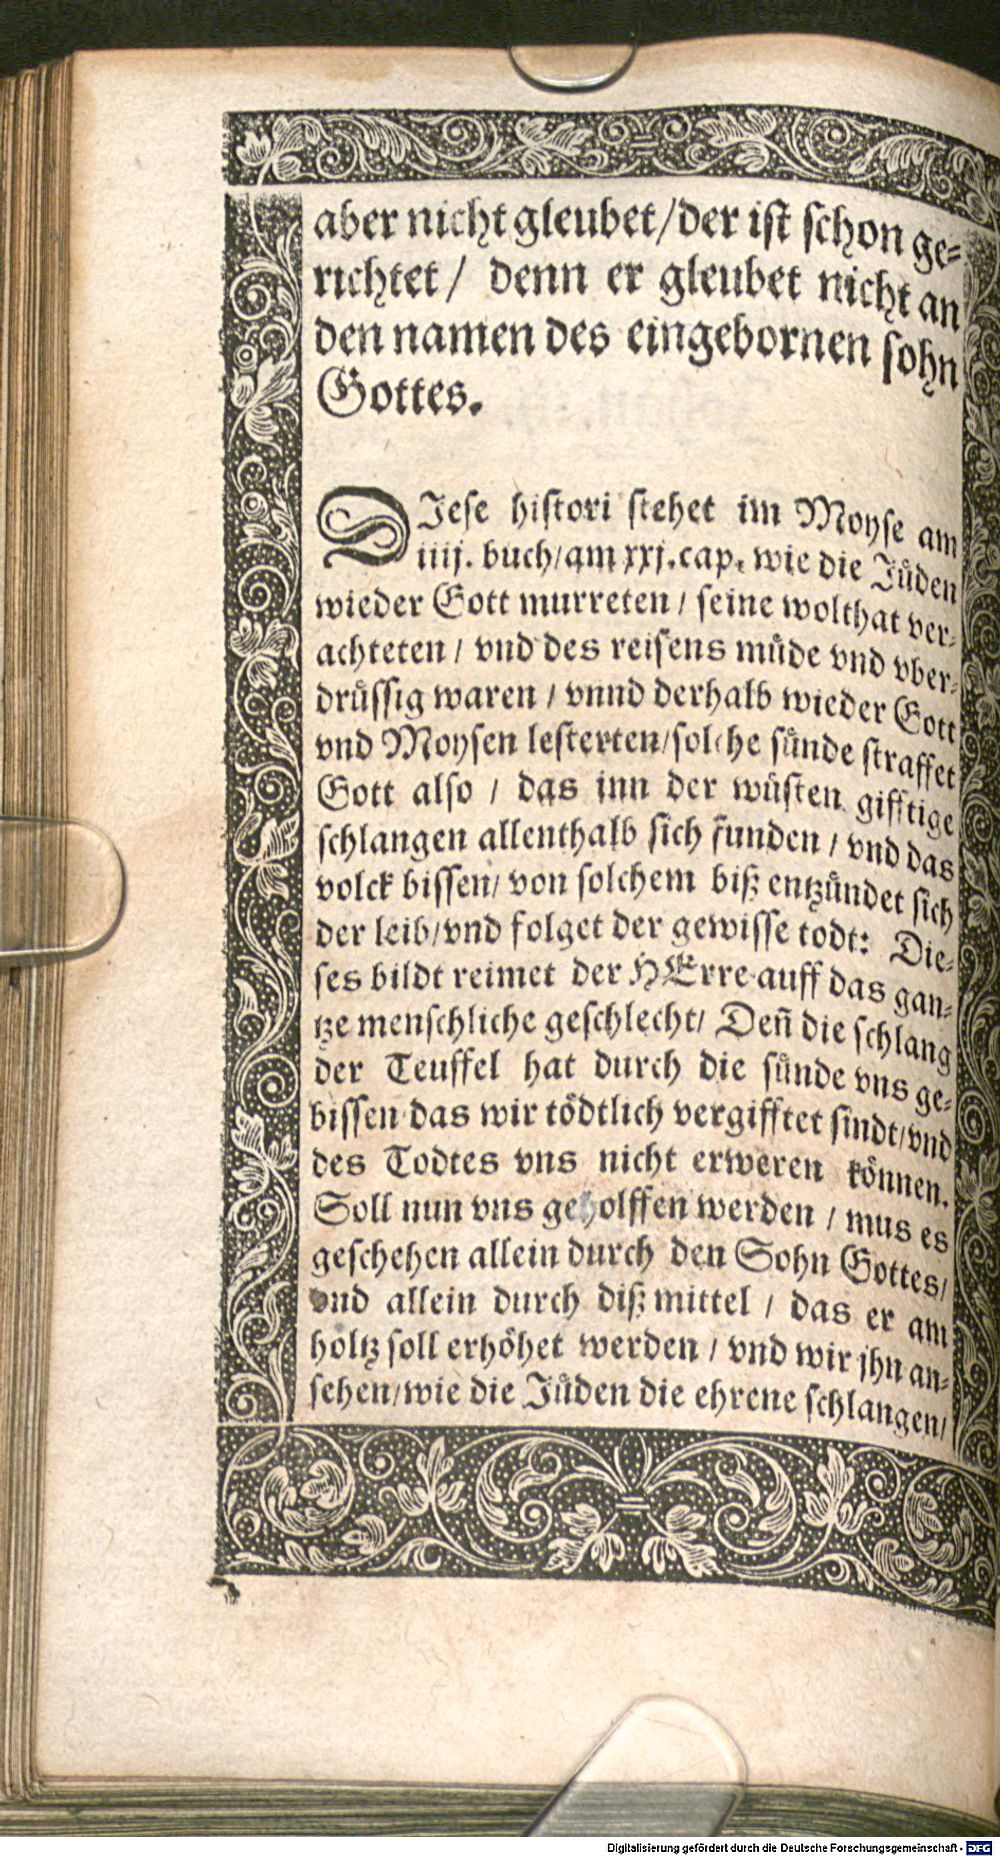 aber nicht gleubet/der ist schon ge-
richtet / denn er gleubet nicht an
den namen des eingebornen sohn
Gottes.
DJese histori stehet im Moyse am
iiij. buch/am xxj.cap. wie die Jüden
wieder Gott murreten / seine wolthat ver-
achteten / vnd des reisens müde vnd vber-
drüssig waren / vnnd derhalb wieder Gott
vnd Moysen lesterten/solche sünde straffet
Gott also / das inn der wüsten gifftige
schlangen allenthalb sich funden / vnd das
volck bissen/ von solchem biß entzündet sich
der leib/vnd folget der gewisse todt: Die-
ses bildt reimet der HErre auff das gan-
tze menschliche geschlecht/ Deñ die schlang
der Teuffel hat durch die sünde vns ge-
bissen das wir tödtlich vergifftet sindt/vnd
des Todtes vns nicht erweren können.
Soll nun vns geholffen werden / mus es
geschehen allein durch den Sohn Gottes/
vnd allein durch diß mittel / das er am
holtz soll erhöhet werden / vnd wir jhn an-
sehen/wie die Jüden die ehrene schlangen/
Digitalisierung gefördert durch die Deutsche Forschungsgemeinschaft - DFG